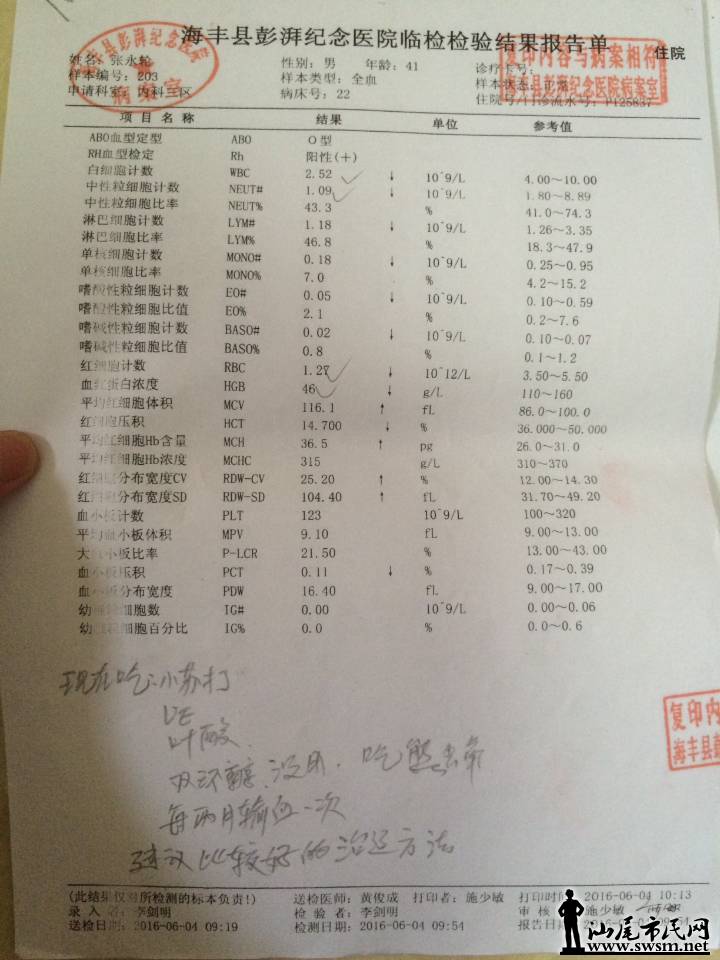 海丰县彭湃纪念医院临检检验结果报告单
住院
姓名：张永轮 性别：男 年龄：41 诊疗卡号：
样本编号：203 样本类型：全血 样本状态：正常
申请科室：内科三区 病床号：22 住院号/门诊流水号：P125837
海丰县彭湃纪念医院
病案室
复印内容与病案相符
海丰县彭湃纪念医院病案室
项目名称 结果 单位 参考值
ABO血型定型 ABO O型
RH血型检定 Rh 阳性(+)
白细胞计数 WBC 2.52 ↓ 10^9/L 4.00～10.00
中性粒细胞计数 NEUT# 1.09 ↓ 10^9/L 1.80～8.89
中性粒细胞比率 NEUT% 43.3 % 41.0～74.3
淋巴细胞计数 LYM# 1.18 ↓ 10^9/L 1.26～3.35
淋巴细胞比率 LYM% 46.8 % 18.3～47.9
单核细胞计数 MONO# 0.18 ↓ 10^9/L 0.25～0.95
单核细胞比率 MONO% 7.0 % 4.2～15.2
嗜酸性粒细胞计数 EO# 0.05 ↓ 10^9/L 0.10～0.59
嗜酸性粒细胞比值 EO% 2.1 % 0.2～7.6
嗜碱性粒细胞计数 BASO# 0.02 ↓ 10^9/L 0.10～0.07
嗜碱性粒细胞比值 BASO% 0.8 % 0.1～1.2
红细胞计数 RBC 1.27 ↓ 10^12/L 3.50～5.50
血红蛋白浓度 HGB 46 ↓ g/L 110～160
平均红细胞体积 MCV 116.1 ↑ fL 86.0～100.0
红细胞压积 HCT 14.700 ↓ % 36.000～50.000
平均红细胞Hb含量 MCH 36.5 ↑ pg 26.0～31.0
平均红细胞Hb浓度 MCHC 315 g/L 310～370
红细胞分布宽度CV RDW-CV 25.20 ↑ % 12.00～14.30
红细胞分布宽度SD RDW-SD 104.40 ↑ fL 31.70～49.20
血小板计数 PLT 123 10^9/L 100～320
平均血小板体积 MPV 9.10 fL 9.00～13.00
大血小板比率 P-LCR 21.50 % 13.00～43.00
血小板压积 PCT 0.11 ↓ % 0.17～0.39
血小板分布宽度 PDW 16.40 fL 9.00～17.00
幼稚粒细胞数 IG# 0.00 10^9/L 0.00～0.06
幼稚粒细胞百分比 IG% 0.0 % 0.0～0.6
现在吃小苏打
VE
叶酸
双环醇、没用，吃熊
每两月输血一次
建议比较好的治疗方法
复印内
海丰县彭
(此结果仅对所检测的标本负责!) 送检医师：黄俊成 打印者：施少敏 打印时间：2016-06-04 10:13
录入者：李剑明 检验者：李剑明 审核 施少敏
送检日期：2016-06-04 09:19 检测日期：2016-06-04 09:54 报告日期
汕尾市民网
www.swsm.net